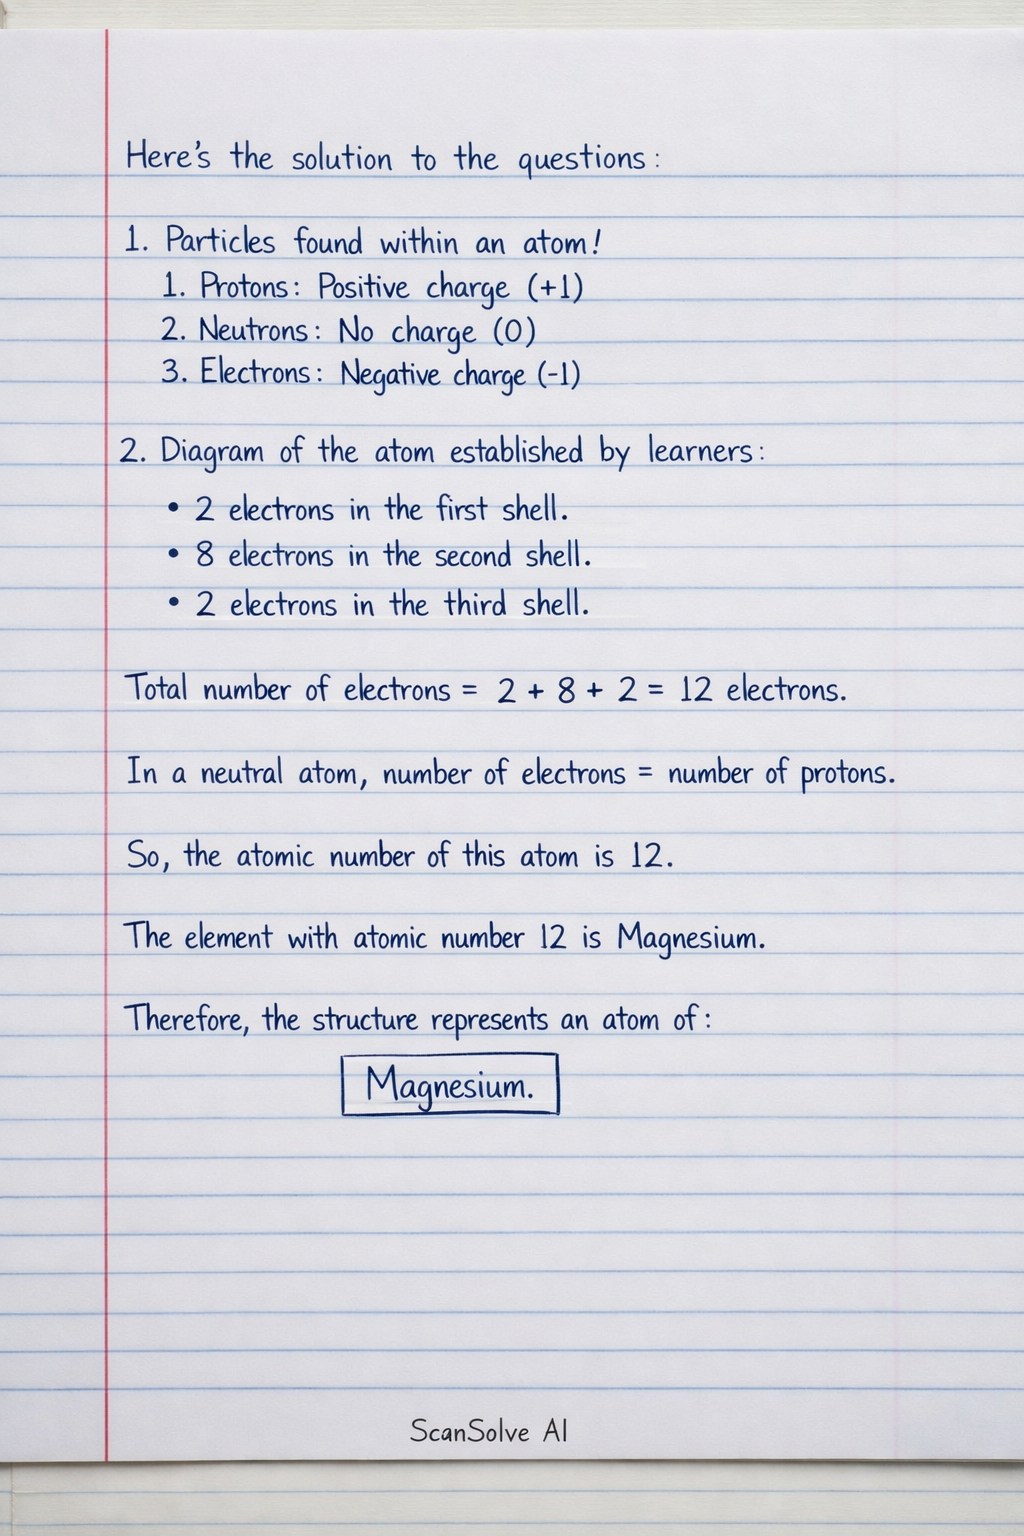 Here's the solution to the questions:
1. Particles found within an atom!
1. Protons: Positive charge (+1)
2. Neutrons: No charge (0)
3. Electrons: Negative charge (-1)
2. Diagram of the atom established by learners:
• 2 electrons in the first shell.
• 8 electrons in the second shell.
• 2 electrons in the third shell.
Total number of electrons = 2 + 8 + 2 = 12 electrons.
In a neutral atom, number of electrons = number of protons.
So, the atomic number of this atom is 12.
The element with atomic number 12 is Magnesium.
Therefore, the structure represents an atom of:
Magnesium.
ScanSolve AI